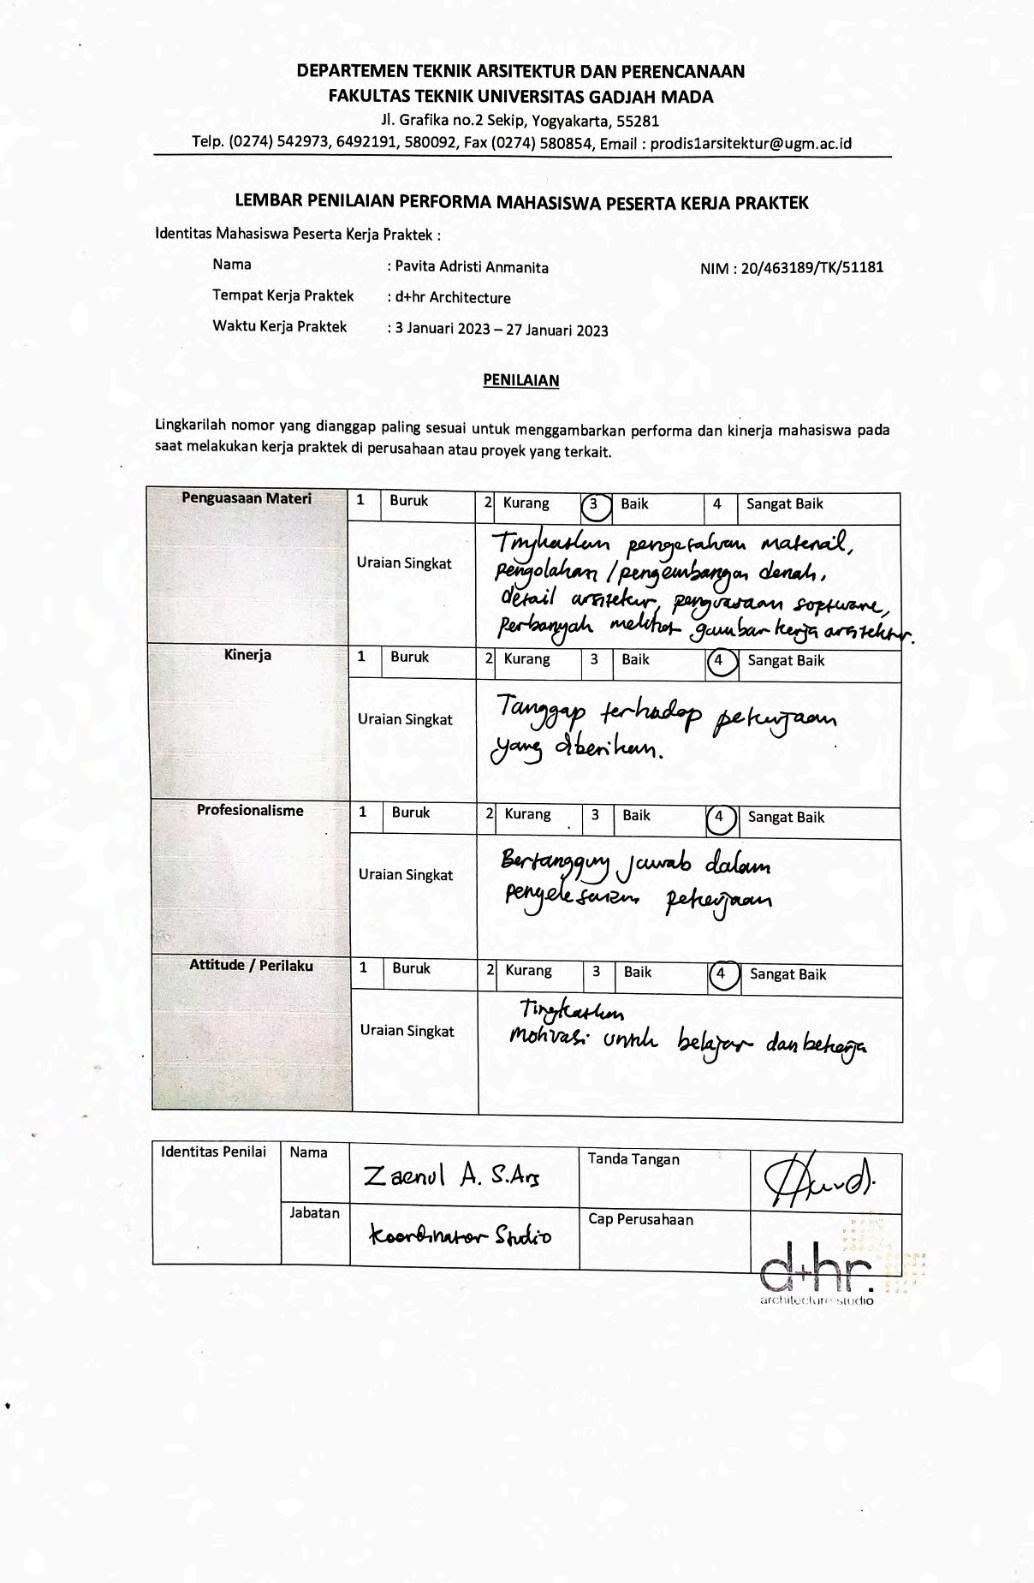 DEPARTEMEN TEKNIK ARSITEKTUR DAN PERENCANAAN
FAKULTAS TEKNIK UNIVERSITAS GADJAH MADA
Jl. Grafika no.2 Sekip, Yogyakarta, 55281
Telp. (0274) 542973, 6492191, 580092, Fax (0274) 580854, Email : prodis1arsitektur@ugm.ac.id
LEMBAR PENILAIAN PERFORMA MAHASISWA PESERTA KERJA PRAKTEK
Identitas Mahasiswa Peserta Kerja Praktek :
Nama : Pavita Adristi Anmanita NIM : 20/463189/TK/51181
Tempat Kerja Praktek : d+hr Architecture
Waktu Kerja Praktek : 3 Januari 2023 – 27 Januari 2023
PENILAIAN
Lingkarilah nomor yang dianggap paling sesuai untuk menggambarkan performa dan kinerja mahasiswa pada
saat melakukan kerja praktek di perusahaan atau proyek yang terkait.
Penguasaan Materi 1 Buruk 2 Kurang 3 Baik 4 Sangat Baik
Uraian Singkat
Tingkatkan pengetahuan material,
pengolahan / pengembangan denah,
detail arsitektur, penguasaan software,
Perbanyak melihat gambar kerja arsitektur.
Kinerja 1 Buruk 2 Kurang 3 Baik 4 Sangat Baik
Uraian Singkat
Tanggap terhadap pekerjaan
yang diberikan.
Profesionalisme 1 Buruk 2 Kurang 3 Baik 4 Sangat Baik
Uraian Singkat
Bertanggung jawab dalam
penyelesaian pekerjaan
Attitude / Perilaku 1 Buruk 2 Kurang 3 Baik 4 Sangat Baik
Uraian Singkat
Tingkatkan
motivasi untuk belajar dan bekerja
Identitas Penilai Nama Zaenul A. S.Ars Tanda Tangan
Jabatan Koordinator Studio Cap Perusahaan
d+hr.
architecture studio